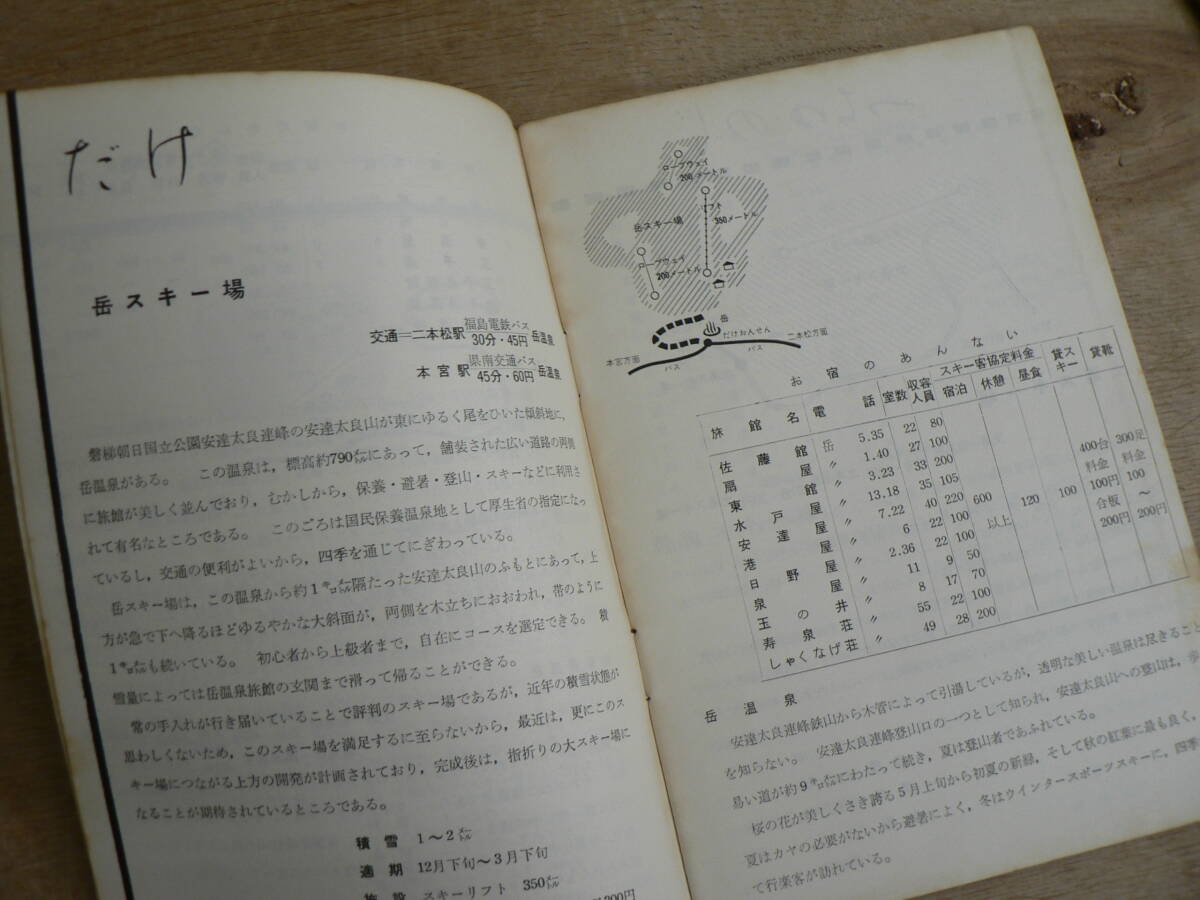 だけ
岳スキー場
交通―二本松駅 福島電鉄バス 30分・45円 岳温泉
本宮駅 県南交通バス 45分・60円 岳温泉
磐梯朝日国立公園安達太良連峰の安達太良山が東にゆるく尾をひいた傾斜地に,
岳温泉がある。 この温泉は, 標高約790メートルにあって, 舗装された広い道路の両側
に旅館が美しく並んでおり, むかしから, 保養・避暑・登山・スキーなどに利用さ
れて有名なところである。 このごろは国民保養温泉地として厚生省の指定になっ
ているし, 交通の便利がよいから, 四季を通じてにぎわっている。
岳スキー場は, この温泉から約1キロメートル隔たった安達太良山のふもとにあって, 上
方が急で下へ降るほどゆるやかな大斜面が, 両側を木立ちにおおわれ, 帯のように
1キロメートルも続いている。 初心者から上級者まで, 自在にコースを選定できる。 積
雪量によっては岳温泉旅館の玄関まで滑って帰ることができる。
常の手入れが行き届いていることで評判のスキー場であるが, 近年の積雪状態が
思わしくないため, このスキー場を満足するに至らないから, 最近は, 更にこのス
キー場につながる上方の開発が計画されており, 完成後は, 指折りの大スキー場に
なることが期待されているところである。
積雪 1〜2メートル
適期 12月下旬〜3月下旬
施設 スキーリフト 350メートル
ロープウェイ
200メートル
リフト
350メートル
岳スキー場
ロープウェイ
200メートル
岳
だけおんせん
本宮方面
バス
バス
二本松方面
お宿のあんない
旅館名 電話 室数 収容人員 スキー客協定料金 宿泊 休憩 昼食 貸スキー 貸靴
佐藤館 岳 5.35 22 80
扇屋 〃 1.40 27 100
東館 〃 3.23 33 200
水戸屋 〃 13.18 35 105
安達屋 〃 7.22 40 220
港屋 〃 6 22 100
日野屋 〃 2.36 22 100
泉屋 〃 11 9 50
玉の井 〃 8 17 70
寿泉荘 〃 55 22 100
しゃくなげ荘 〃 49 28 200
600
以上
120
100
400台
料金
100円
合板
200円
300足
料金
100
〜
200円
岳温泉
安達太良連峰鉄山から木管によって引湯しているが, 透明な美しい温泉は尽きること
を知らない。 安達太良連峰登山口の一つとして知られ, 安達太良山への登山は, 歩
易い道が約9キロメートルにわたって続き, 夏は登山者であふれている。
桜の花が美しくさき誇る5月上旬から初夏の新緑, そして秋の紅葉に最も良く,
夏はカヤの必要がないから避暑によく, 冬はウインタースポーツスキーに, 四季
て行楽客が訪れている。